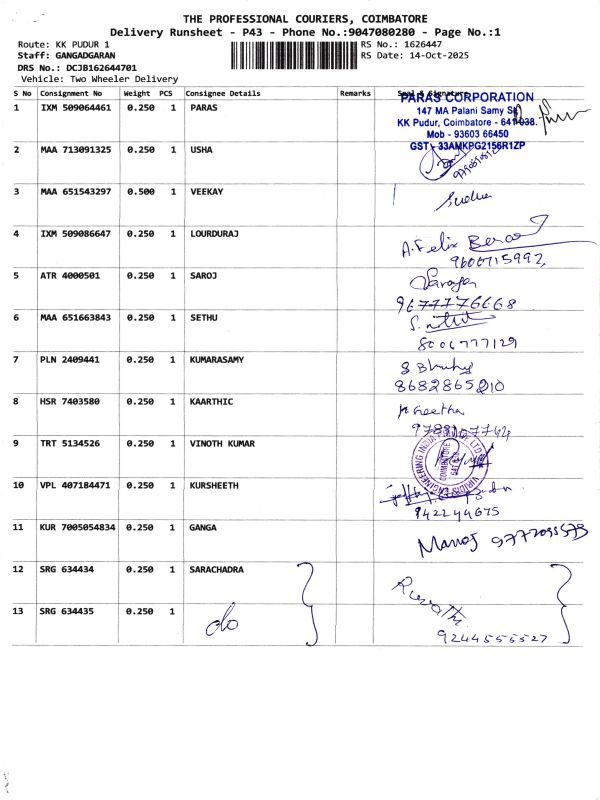 THE PROFESSIONAL COURIERS, COIMBATORE
Delivery Runsheet - P43 - Phone No.:9047080280 - Page No.:1
Route: KK PUDUR 1 RS No.: 1626447
Staff: GANGADGARAN RS Date: 14-Oct-2025
DRS No.: DCJB162644701
Vehicle: Two Wheeler Delivery
S No Consignment No Weight PCS Consignee Details Remarks Seal & Signature
1 IXM 509064461 0.250 1 PARAS
PARAS CORPORATION
147 MA Palani Samy St,
KK Pudur, Coimbatore - 641 038.
Mob - 93603 66450
GST - 33AMKPG2156R1ZP
2 MAA 713091325 0.250 1 USHA
3 MAA 651543297 0.500 1 VEEKAY
Sudha
4 IXM 509086647 0.250 1 LOURDURAJ
A. Felix
9600715992
5 ATR 4000501 0.250 1 SAROJ
Saroja
9677776668
6 MAA 651663843 0.250 1 SETHU
8006777129
7 PLN 2409441 0.250 1 KUMARASAMY
8682865210
8 HSR 7403580 0.250 1 KAARTHIC
Geetha
9 TRT 5134526 0.250 1 VINOTH KUMAR
ENGINEERING INDIA
COIMBATORE
10 VPL 407184471 0.250 1 KURSHEETH
9422449675
11 KUR 7005054834 0.250 1 GANGA
Manoj
12 SRG 634434 0.250 1 SARACHADRA
Revathi
13 SRG 634435 0.250 1
do
9244555527